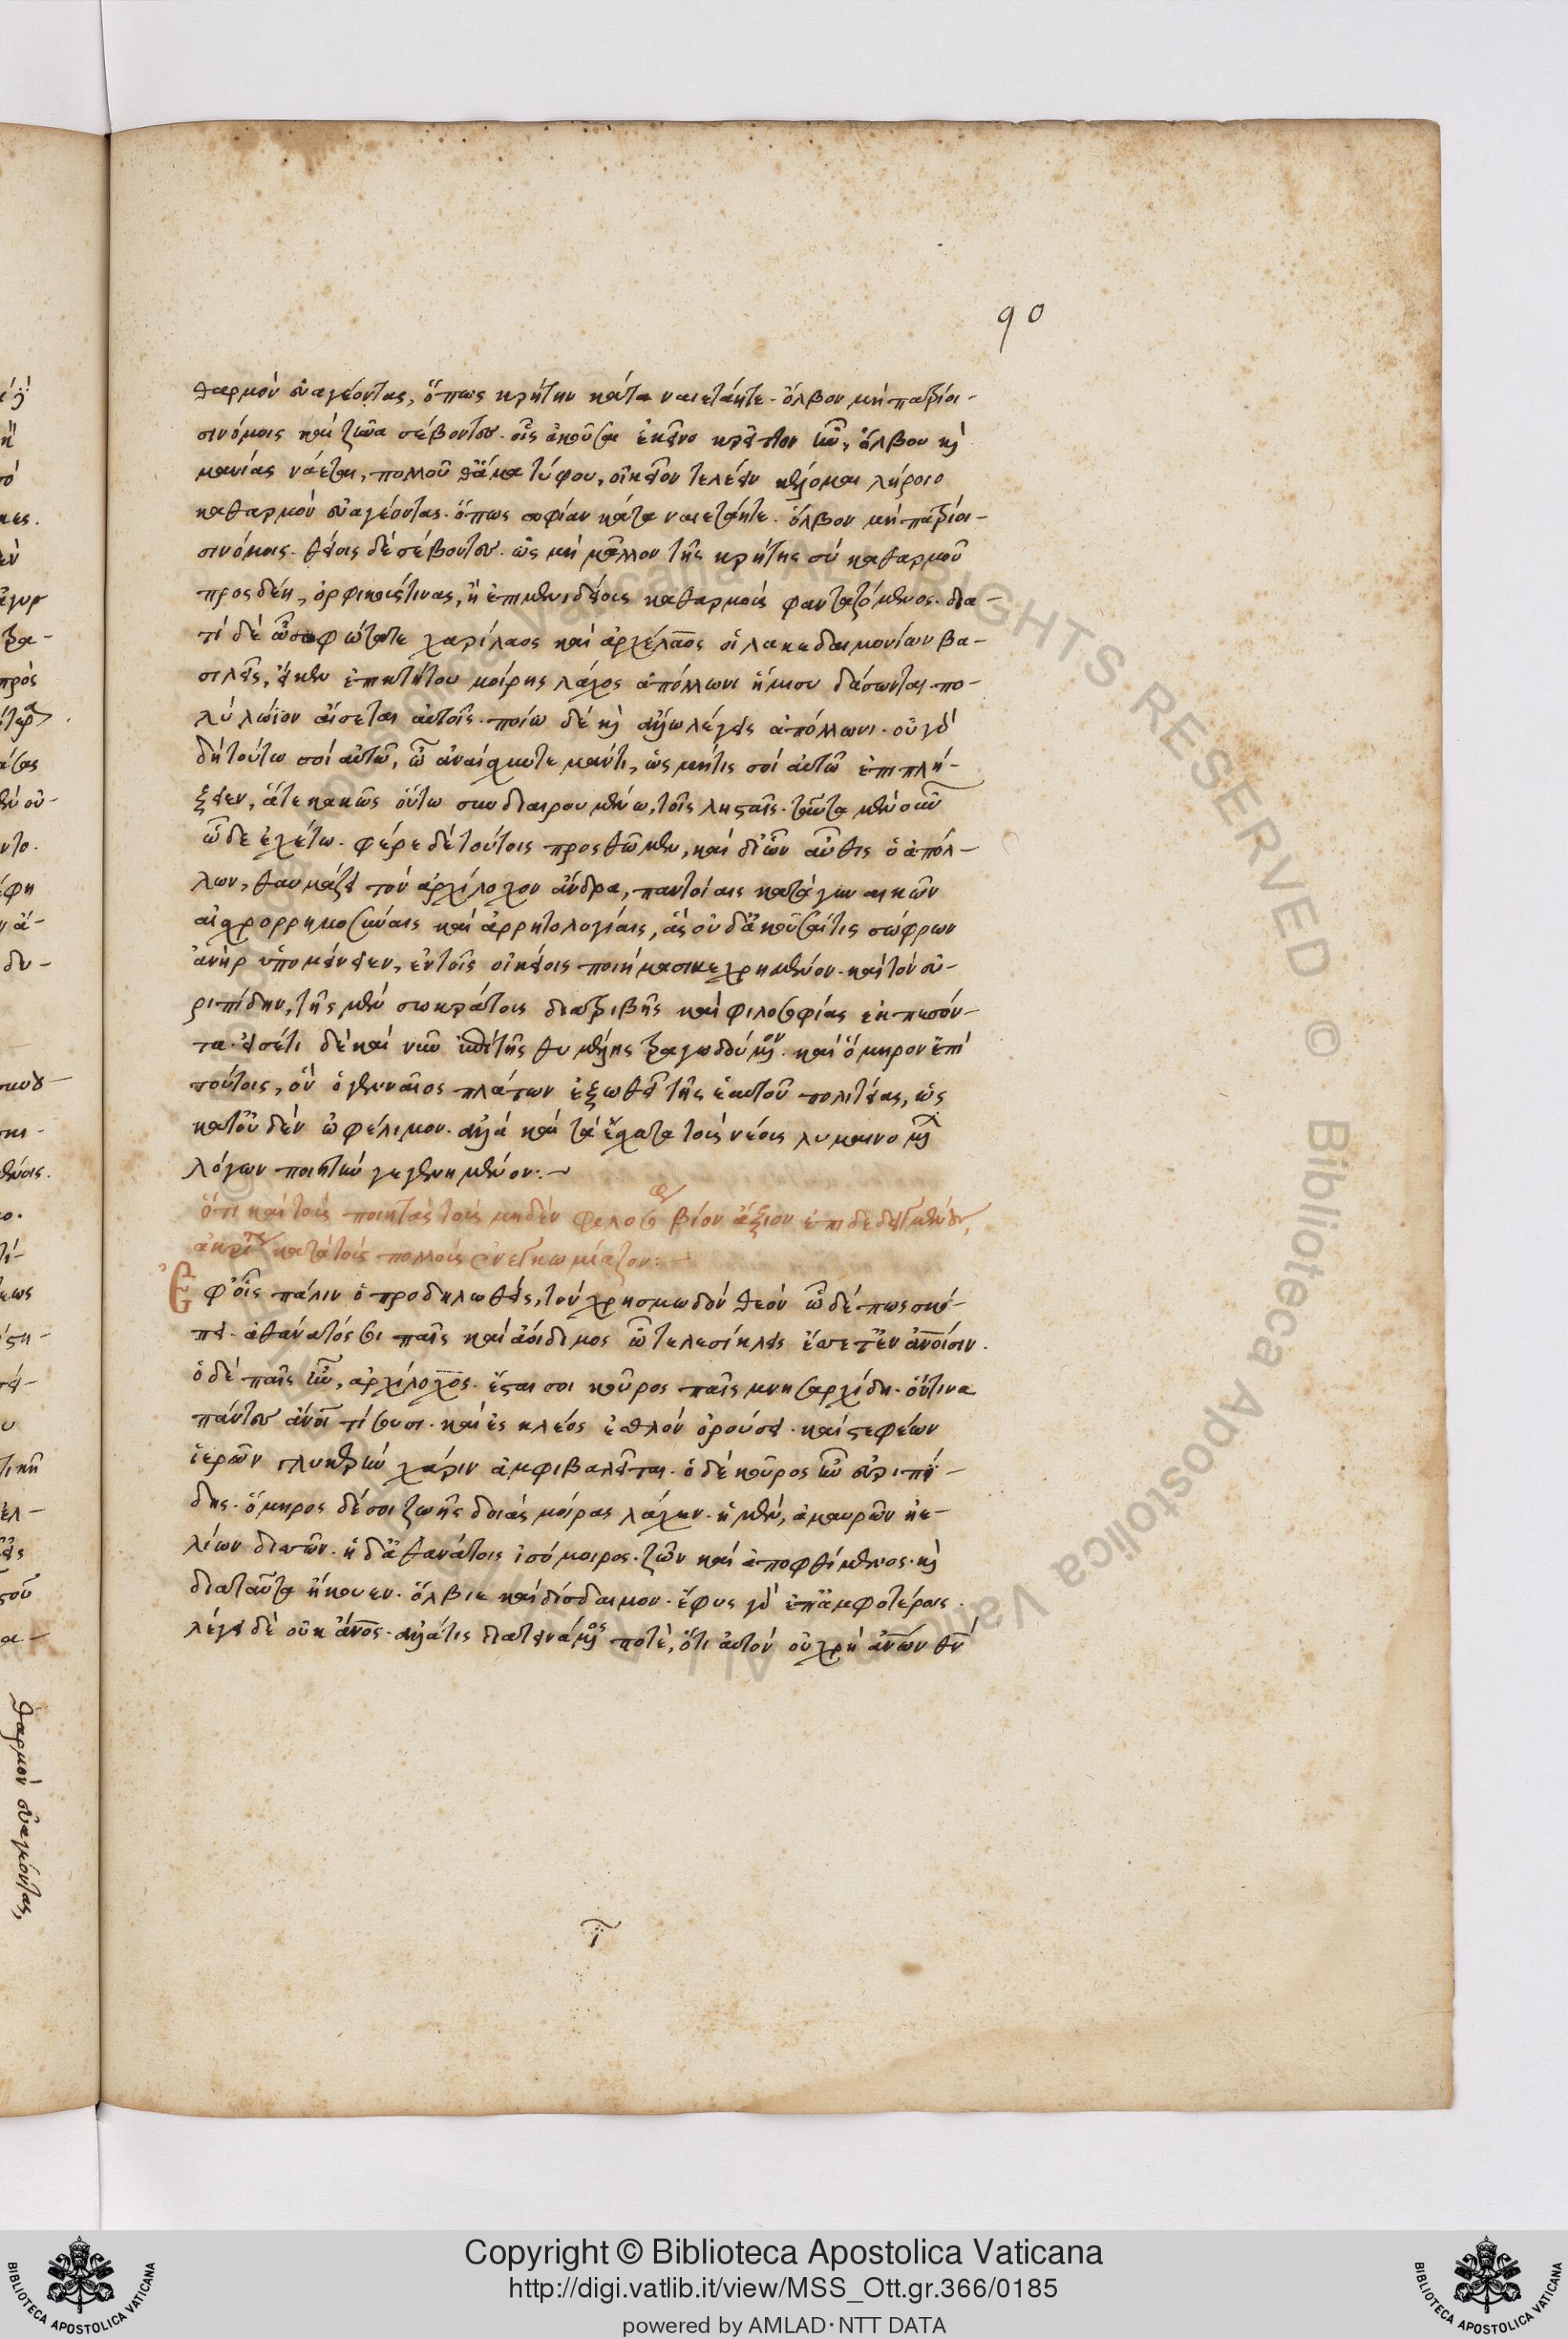 90
θαρμὸν εὐαγέοντας, ὅπως κρήτην κάτα ναιετάητε. ὄλβον μὴ πατρίοι-
σι νόμοις καὶ ζῶα σέβοντες. οἷς ἀκοῦσαι ἐκεῖνο κρεῖττον ἦν, ὄλβου καὶ
μανίας ναέται, πολλοῦ θ' ἅμα τύφου, οἰκεῖον τελέειν κέλομαι λήροιο
καθαρμὸν εὐαγέοντας. ὅπως σοφίαν κάτα ναιετάητε. ὄλβον μὴ πατρίοι-
σι νόμοις. θείοις δὲ σέβοντες. ὡς μὴ μᾶλλον τῆς κρήτης σὺ καθαρμοῦ
προσδέῃ, ὀρφικούς τινας, ἢ ἐπιμενιδείους καθαρμοὺς φανταζόμενος. δια-
τί δὲ ὦ σοφώτατε χαρίλαος καὶ ἀρχέλαος οἱ λακεδαιμονίων βα-
σιλεῖς, εἴ κεν ἐπικτήτου μοίρης λάχος ἀπόλλωνι ἥμισυ δάσωνται πο-
λὺ λώϊον αἴσεται αὐτοῖς. ποίῳ δὲ καὶ ἄλλῳ λέγεις ἀπόλλωνι. οὐ γὰρ
δὴ τούτῳ σοὶ αὐτῶ, ὦ ἀναίσχυντε μάντι, ὡς μήτις σοὶ αὐτῶ ἐπιπλή-
ξειεν, ἅτε κακῶς οὕτω συνδιαιρουμένω, τοῖς λῃσταῖς. ταῦτα μὲν οὖν
ὧδε ἐχέτω. φέρε δὲ τούτοις προσθῶμεν, καὶ δι' ὧν αὖθις ὁ ἀπόλ-
λων, θαυμάζει τὸν ἀρχίλοχον ἄνδρα, παντοίαις κατὰ γυναικῶν
αἰσχρορρημοσύναις καὶ ἀρρητολογίαις, ἃς οὐδ' ἀκοῦσαί τις σώφρων
ἀνὴρ ὑπομείνειεν, ἐν τοῖς οἰκείοις ποιήμασι κεχρημένον. καὶ τὸν εὐ-
ριπίδην, τῆς μὲν σωκράτους διατριβῆς καὶ φιλοσοφίας ἐκπεσόν-
τα. εἰσέτι δὲ καὶ νῦν ἐπὶ τῆς θυμέλης τραγωδούμενον. καὶ ὅμηρον ἐπὶ
τούτοις, ὃν ὁ γενναῖος πλάτων ἐξωθεῖ τῆς ἑαυτοῦ πολιτείας, ὡς
κατ' οὐδὲν ὠφέλιμον. ἀλλὰ καὶ τὰ ἔσχατα τοὺς νέους λυμαινομένων
λόγων ποιητὴν γεγενημένον:~
ὅτι καὶ τοὺς ποιητὰς τοὺς μηδὲν φιλοσόφου βίου ἄξιον ἐπιδεδειγμένους,
κατὰ τοὺς πολλοὺς ἐνεκωμίαζον:
Ἐφ' οἷς πάλιν ὁ προδηλωθεὶς, τὸν χρησμωδὸν θεὸν ὧδέ πως σκώ-
πτει. ἀθάνατός σοι παῖς καὶ ἀοίδιμος ὦ τελεσίκλεις ἔσσετ' ἐν ἀνοισιν.
ὁ δὲ παῖς ἦν, ἀρχίλοχος. ἔσται σοι κοῦρος παῖς μνησαρχίδη. ὅντινα
πάντες ἄνοι τίσουσι. καὶ ἐς κλέος ἐσθλὸν ὀρούσει. καὶ στεφέων
ἱερῶν γλυκερὴν χάριν ἀμφιβαλεῖται. ὁ δὲ κοῦρος ἦν εὐριπί-
δης. ὅμηρος δέ σοι ζωῆς δοιὰς μοίρας λάχεν. ἡ μὲν, ἀμαυρῶν ἠε-
λίων δισσῶν. ἡ δ' ἀθανάτοις ἰσόμοιρος. ζῶν καὶ ἀποφθίμενος. καὶ
διὰ ταῦτα ἤκουεν. ὄλβιε καὶ δύσδαιμον. ἔφυς γὰρ ἐπ' ἀμφοτέροις.
λέγει δὲ οὐκ ἄνος. ἀλλά τις διατεινάμενος ποτὲ, ὅτι αὐτὸν οὐ χρὴ ἀνων
Copyright © Biblioteca Apostolica Vaticana
http://digi.vatlib.it/view/MSS_Ott.gr.366/0185
powered by AMLAD·NTT DATA
BIBLIOTECA APOSTOLICA VATICANA
BIBLIOTECA APOSTOLICA VATICANA